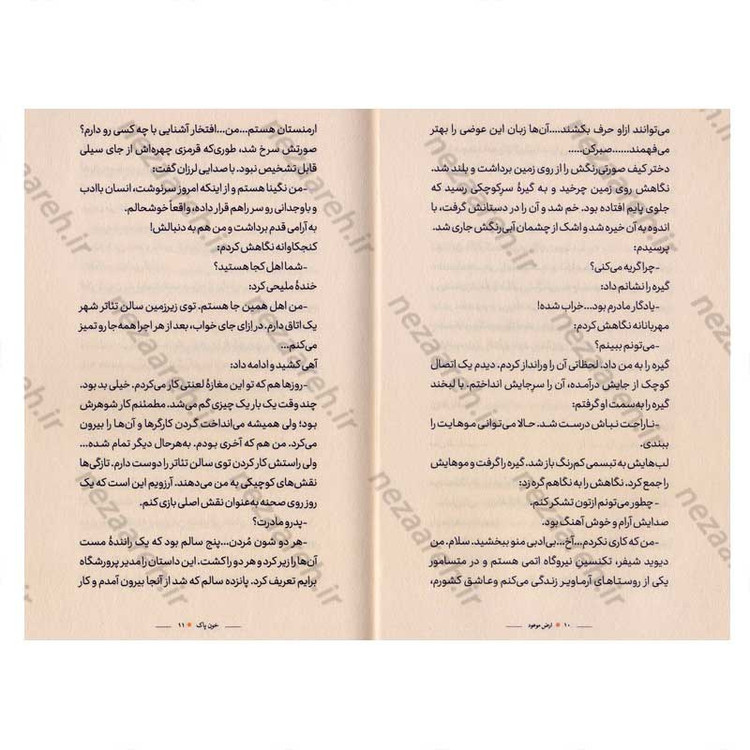 می‌توانند ازاو حرف بکشند....آن‌ها زبان این عوضی را بهتر
می‌فهمند......صبرکن.....
دختر کیف صورتی‌رنگش را از روی زمین برداشت و بلند شد.
نگاهش روی زمین چرخید و به گیرهٔ سرکوچکی رسید که
جلوی پایم افتاده بود. خم شد و آن را در دستانش گرفت، با
اندوه به آن خیره شد و اشک از چشمان آبی‌رنگش جاری شد.
پرسیدم:
-چرا گریه می‌کنی؟
گیره را نشانم داد:
-یادگار مادرم بود...خراب شده!
مهربانانه نگاهش کردم:
-می‌تونم ببینم؟
گیره را به من داد. لحظاتی آن را ورانداز کردم. دیدم یک اتصال
کوچک از جایش درآمده، آن را سرجایش انداختم. با لبخند
گیره را به‌سمت او گرفتم:
-ناراحت نباش درست شد. حالا می‌توانی موهایت را
ببندی.
لب‌هایش به تبسمی کم‌رنگ باز شد. گیره را گرفت و موهایش
را جمع کرد. نگاهش را به نگاهم گره زد:
-چطور می‌تونم ازتون تشکر کنم.
صدایش آرام و خوش آهنگ بود.
-من که کاری نکردم...آخ...بی‌ادبی منو ببخشید. سلام. من
دیوید شیفر، تکنسین نیروگاه اتمی هستم و در متسامور
یکی از روستاهای آرماویر زندگی می‌کنم و عاشق کشورم،
۱۰ ● ارض موعود
ارمنستان هستم...من...افتخار آشنایی با چه کسی رو دارم؟
صورتش سرخ شد، طوری‌که قرمزی چهره‌اش از جای سیلی
قابل تشخیص نبود. با صدایی لرزان گفت:
-من نگینا هستم و از اینکه امروز سرنوشت، انسان باادب
و باوجدانی رو سر راهم قرار داده، واقعاً خوشحالم.
به آرامی قدم برداشت و من هم به دنبالش!
کنجکاوانه نگاهش کردم:
-شما اهل کجا هستید؟
خندهٔ ملیحی کرد:
-من اهل همین جا هستم. توی زیرزمین سالن تئاتر شهر
یک اتاق دارم. در ازای جای خواب، بعد از هر اجرا همه جا رو تمیز
می‌کنم...
آهی کشید و ادامه داد:
-روزها هم که تو این مغازهٔ لعنتی کار می‌کردم. خیلی بد بود.
چند وقت یک بار یک چیزی گم می‌شد. مطمئنم کار شوهرش
بود؛ ولی همیشه می‌انداخت گردن کارگرها و آن‌ها را بیرون
می‌کرد. من هم که آخری بودم. به‌هرحال دیگر تمام شده...
ولی راستش کار کردن توی سالن تئاتر را دوست دارم. تازگی‌ها
نقش‌های کوچیکی به من می‌دهند. آرزویم این است که یک
روز روی صحنه به‌عنوان نقش اصلی بازی کنم.
-پدر و مادرت؟
-هر دو شون مُردن...پنج سالم بود که یک رانندهٔ مست
آن‌ها را زیر کرد و هر دو را کشت. این داستان را مدیر پرورشگاه
برایم تعریف کرد. پانزده سالم که شد از آنجا بیرون آمدم و کار
خون پاک ● ۱۱
nezaareh.ir